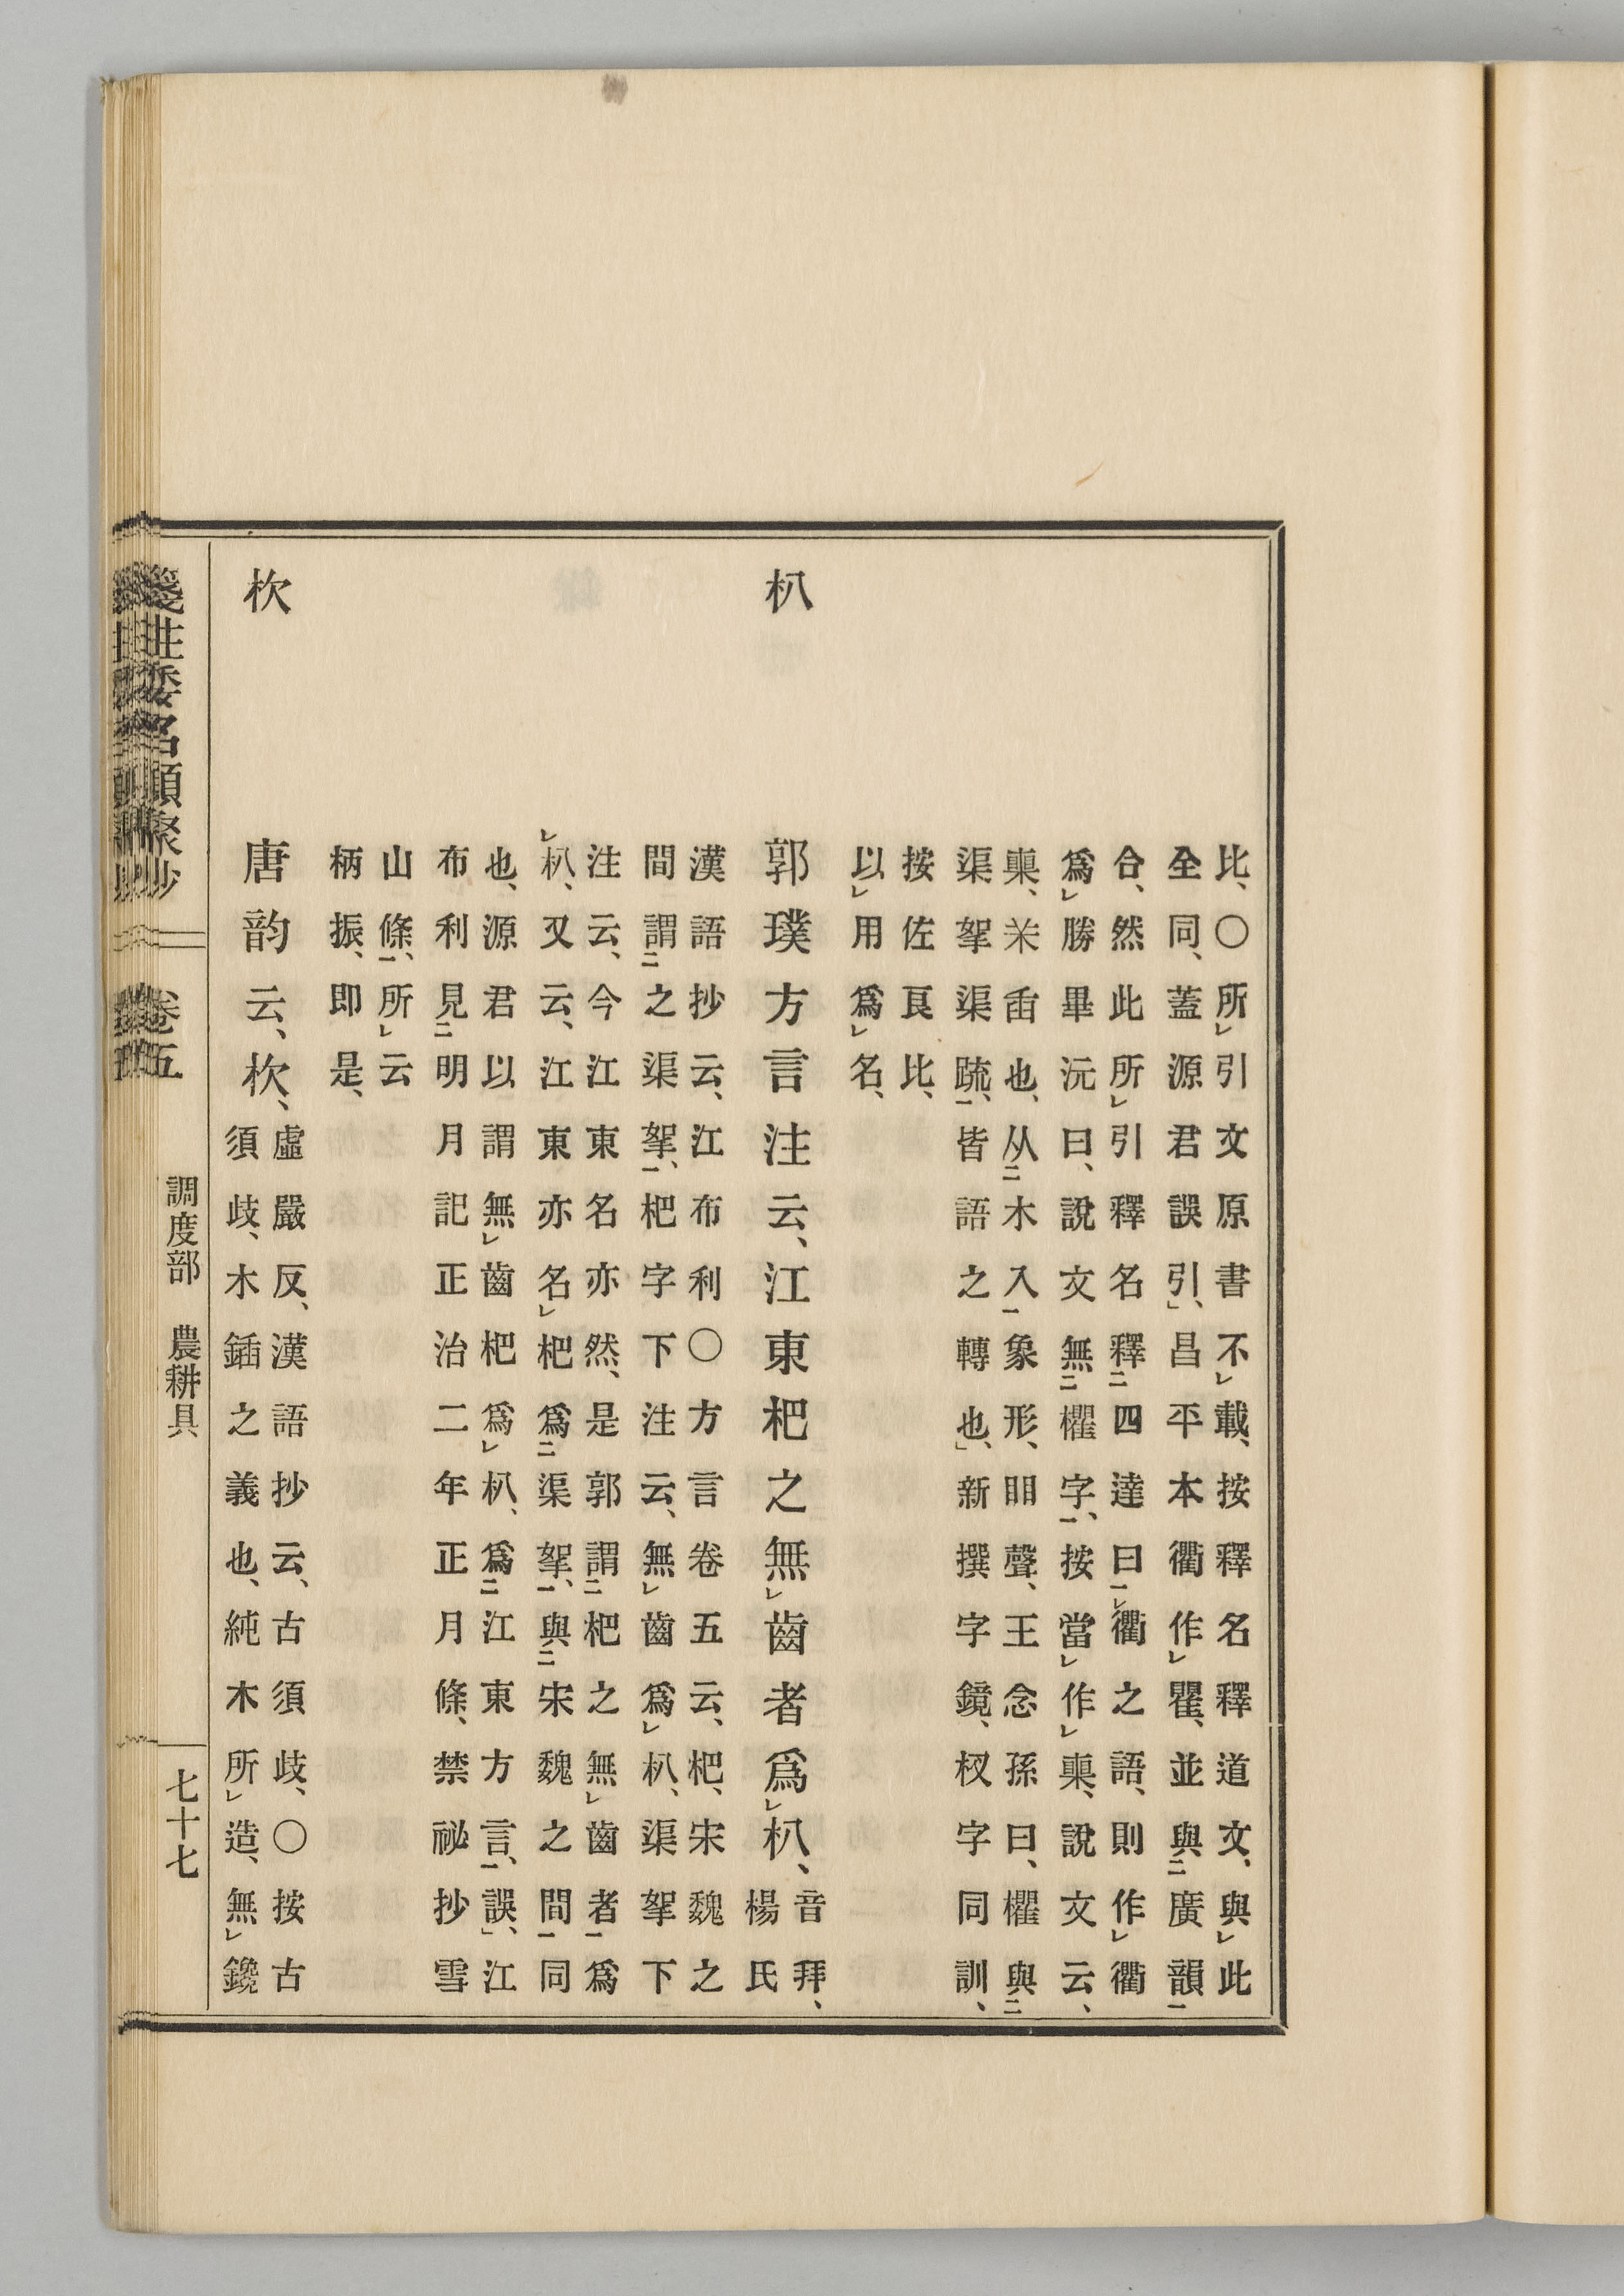 比、〇所引文原書不載、按釋名釋道文、與此
全同、蓋源君誤引、昌平本衢作瞿、並與廣韻
合、然此所引釋名釋四達曰衢之語、則作衢
爲勝、畢沅曰、說文無欋字、按當作㭒、說文云、
㭒、𠦒臿也、从木入象形、䀠聲、王念孫曰、欋與
渠挐渠疏、皆語之轉也、新撰字鏡、杈字同訓、
按佐良比、
以用爲名、
朳
郭璞方言注云、江東杷之無齒者爲朳、音拜、楊氏
漢語抄云、江布利〇方言卷五云、杷、宋魏之
間謂之渠挐、杷字下注云、無齒爲朳、渠挐下
注云、今江東名亦然、是郭謂杷之無齒者爲
朳、又云、江東亦名杷爲渠挐、與宋魏之間同
也、源君以謂無齒杷爲朳、爲江東方言、誤、江
布利見明月記正治二年正月條、禁祕抄雪
山條、所云
柄振、卽是、
杴
唐韵云、杴、虛嚴反、漢語抄云、古須歧、〇按古
須歧、木鍤之義也、純木所造、無鑱
箋注倭名類聚抄
卷五
調度部 農耕具
七十七